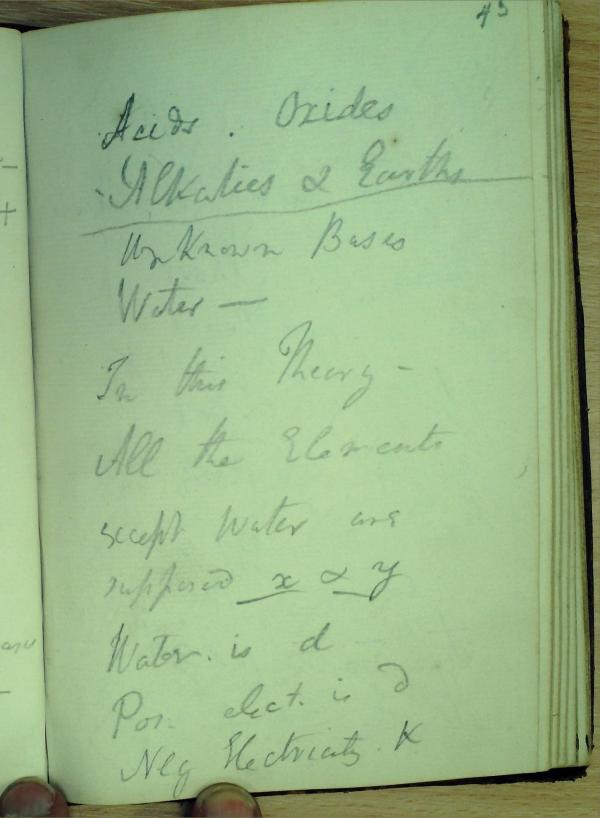 43
Acids. Oxides
Alkalies & Earths
UnKnown Bases
Water —
In this Theory -
All the Elements
except Water are
supposed x & y
Water. is d
Pos. elect. is
Neg Electricity. K